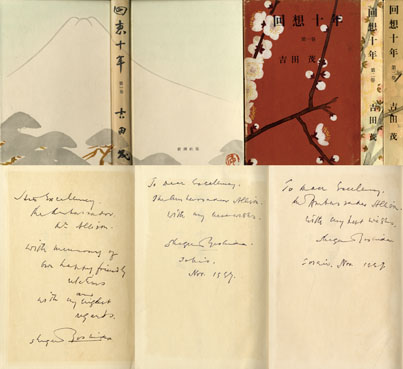 回想十年
第一巻
吉田茂
新潮社版
回想十年
第一巻
吉田茂
回想十年
第二巻
吉田茂
回想十年
吉田茂
Excellency.
Mr. Allison.
with memory of
our happy friendly
and
with my highest
regards.
Shigeru Yoshida
To dear Excellency.
The Ambassador Allison
with my
Shigeru Yoshida.
Nov. 1957.
To dear Excellency
Mr Ambassador Allison
with my best wishes.
Shigeru Yoshida
Nov. 1957.